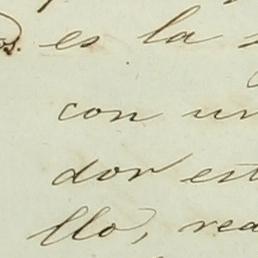 es la
con un
dor est
llo, rea